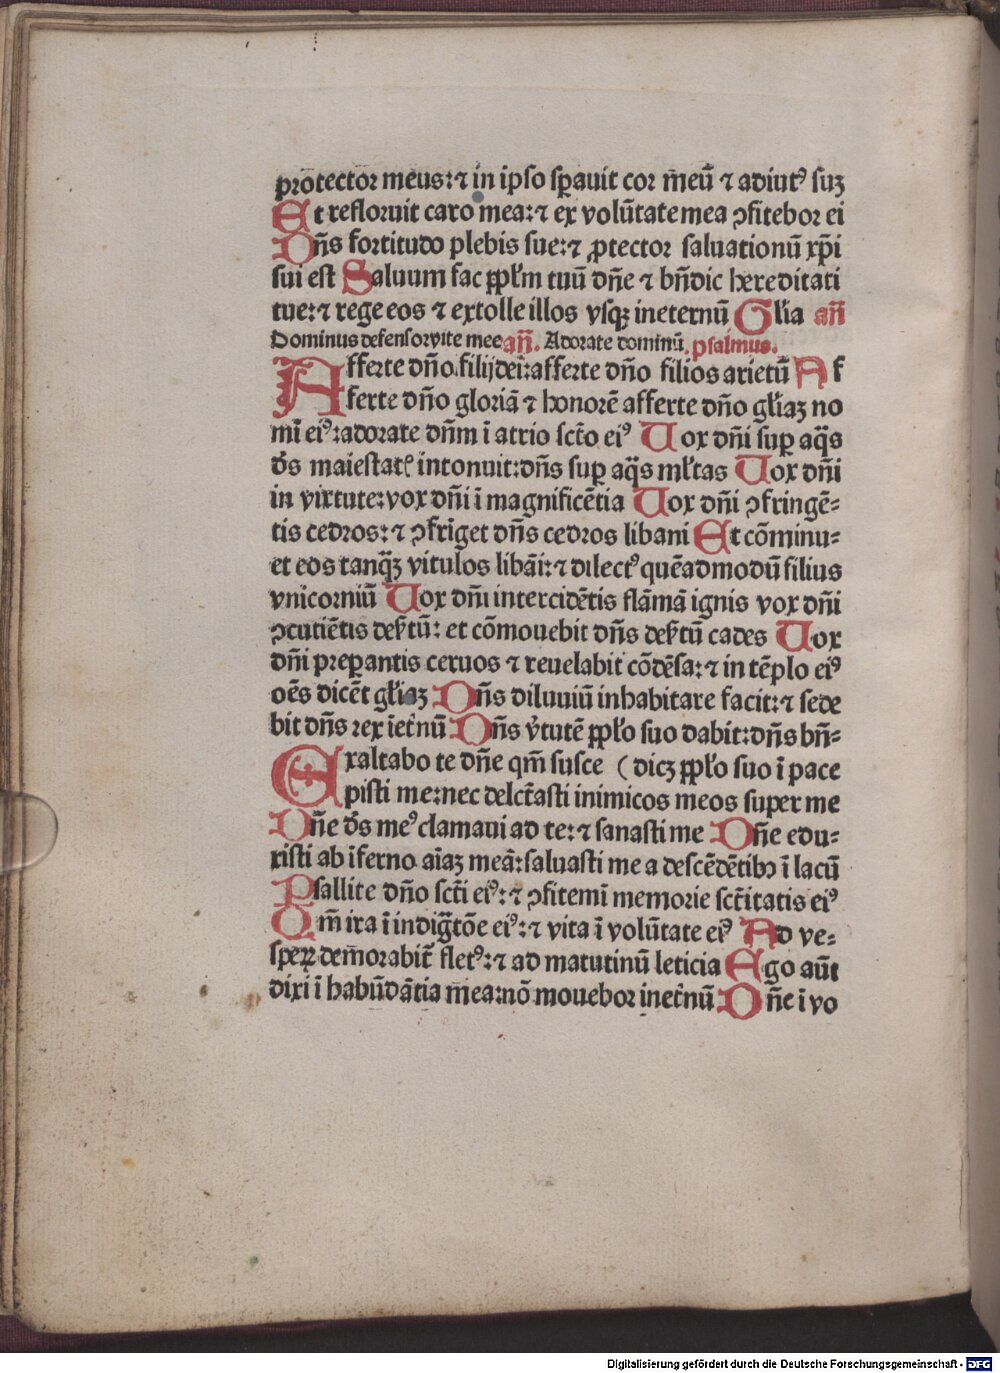 protector meus: ⁊ in ip̄so sꝑauit cor meū ⁊ adiutꝰ suꝫ
Et refloruit caro mea: ⁊ ex volūtate mea ꝯfitebor ei
Dn̄s fortitudo plebis sue: ⁊ ꝓtector saluationū xp̄i
sui est Saluum fac pp̄lm tuū dn̄e ⁊ bn̄dic hereditati
tue: ⁊ rege eos ⁊ extolle illos vsqꝫ ineternū Gl̄ia an̄
Dominus defensor vite mee an̄. Adorate dominū. psalmus.
Afferte dn̄o filij dei: afferte dn̄o filios arietū Af
ferte dn̄o gloriā ⁊ honorē afferte dn̄o gl̄iaꝫ no
mī eiꝰ: adorate dn̄m ī atrio sct̄o eiꝰ Uox dn̄i suꝑ aq̄s
ds̄ maiestatꝭ intonuit: dn̄s suꝑ aq̄s ml̄tas Uox dn̄i
in virtute: vox dn̄i ī magnificētia Uox dn̄i ꝯfringē-
tis cedros: ⁊ ꝯfrīget dn̄s cedros libani Et cōminu-
et eos tanq̄ꝫ vitulos libāi: ⁊ dilectꝰ quēadmodū filius
vnicorniū Uox dn̄i intercidētis flāmā ignis vox dn̄i
ꝯcutiētis desˀtū: et cōmouebit dn̄s desˀtū cades Uox
dn̄i preꝑantis ceruos ⁊ reuelabit cōdēsa: ⁊ in tēplo eiꝰ
oēs dicēt gl̄iaꝫ Dn̄s diluuiū inhabitare facit: ⁊ sede
bit dn̄s rex īetˀnū Dn̄s vˀtutē pp̄lo suo dabit: dn̄s bn̄-
Exaltabo te dn̄e qm̄ susce ( dicꝫ pp̄lo suo ī pace
pisti me: nec delc̄tasti inimicos meos super me
Dn̄e ds̄ meꝰ clamaui ad te: ⁊ sanasti me Dn̄e edu-
xisti ab īferno aīaꝫ meā: saluasti me a descēdētibꝰ ī lacū
Psallite dn̄o sct̄i eiꝰ: ⁊ ꝯfitemī memorie sct̄itatis eiꝰ
Qm̄ ira ī indigt̄ōe eiꝰ: ⁊ vita ī volūtate eiꝰ Ad ve-
speꝝ demorabit̄ fletꝰ: ⁊ ad matutinū leticia Ego aūt
dixi ī habūdātia mea: nō mouebor inetˀnū Dn̄e ī vo
Digitalisierung gefördert durch die Deutsche Forschungsgemeinschaft - DFG